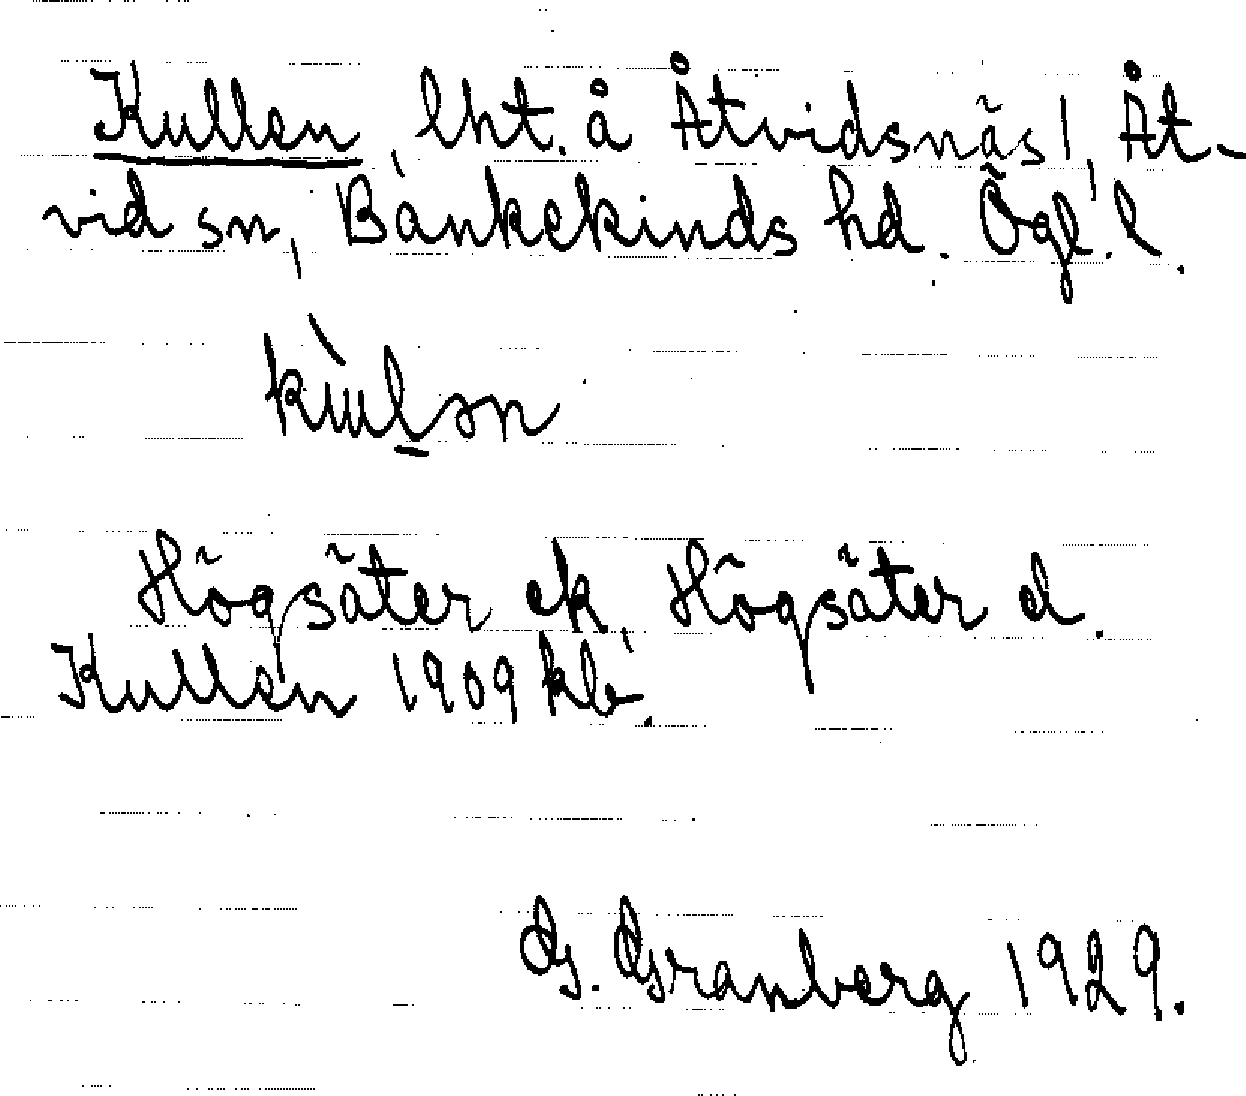 Kullen, lht. å Åtvidsnäs 1, Åt-
vid sn, Bankekinds hd. Ögl. l.
Högsäter ek, Högsäter d.
Kullen 1909 kb.
G. Granberg 1929.